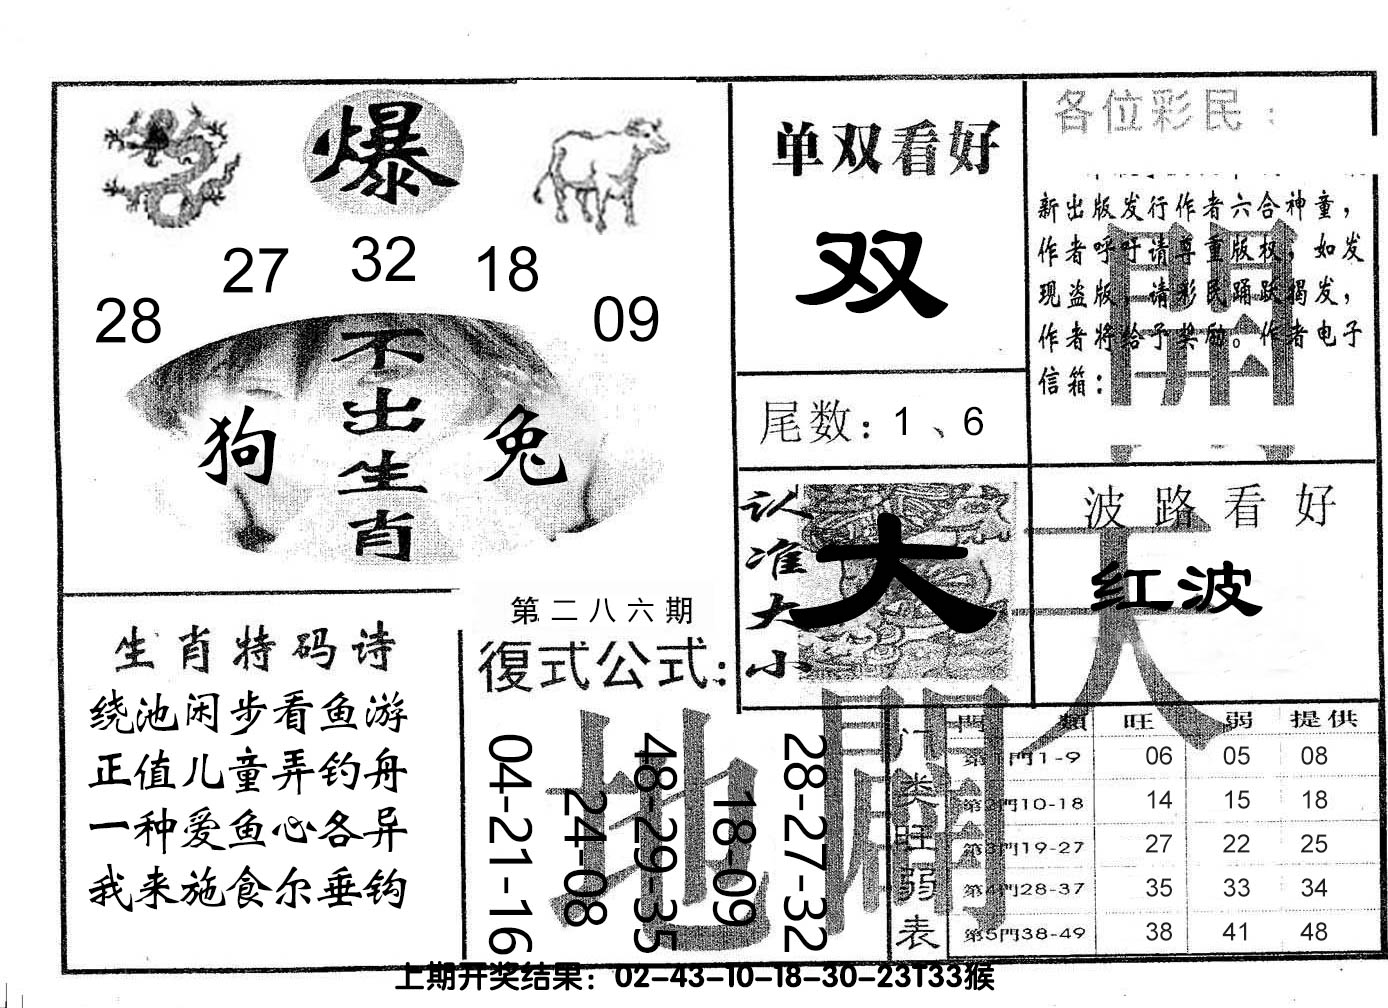 爆
27 32 18
28 09
不出生肖
狗 兔
生肖特码诗
绕池闲步看鱼游
正值儿童弄钓舟
一种爱鱼心各异
我来施食尔垂钩
第二八六期
復式公式:
04-21-16
24-08
48-29-35
18-09
28-27-32
单双看好
双
尾数:1、6
认准大小
大
各位彩民:
新出版发行作者六合神童，
作者呼吁请尊重版权，如发
现盗版，请彩民踊跃揭发，
作者将给予奖励。作者电子
信箱:
波路看好
红波
天
地
門類 旺 弱 提供
门类旺弱表
第1門1-9 06 05 08
第2門10-18 14 15 18
第3門19-27 27 22 25
第4門28-37 35 33 34
第5門38-49 38 41 48
上期开奖结果：02-43-10-18-30-23T33猴